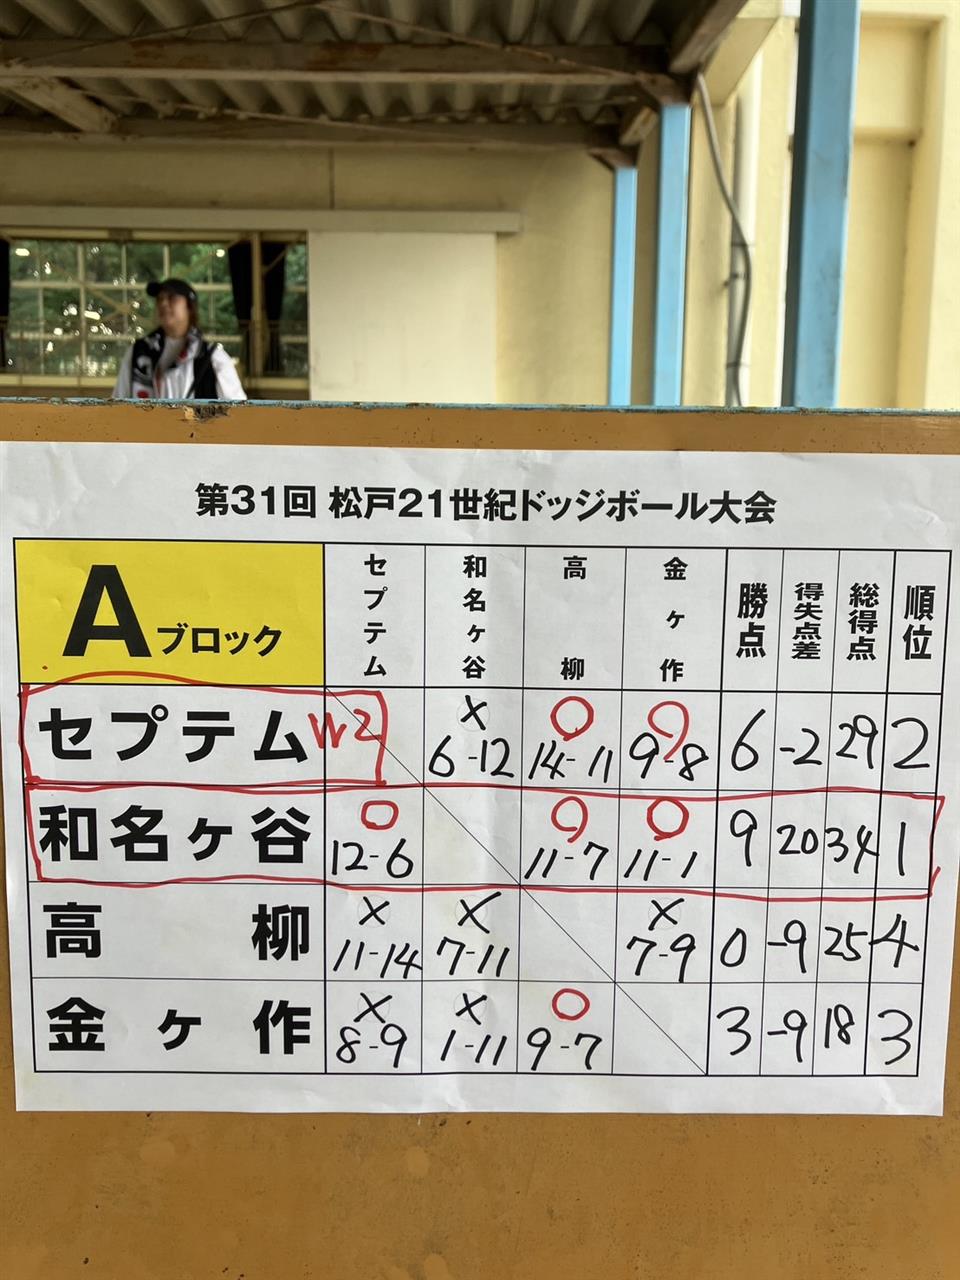 第31回 松戸21世紀ドッジボール大会
Aブロック セプテム 和名ヶ谷 高柳 金ヶ作 勝点 得失点差 総得点 順位
セプテム W2 × 6-12 ○ 14-11 ○ 9-8 6 -2 29 2
和名ヶ谷 ○ 12-6 ○ 11-7 ○ 11-1 9 20 34 1
高柳 × 11-14 × 7-11 × 7-9 0 -9 25 4
金ヶ作 × 8-9 × 1-11 ○ 9-7 3 -9 18 3